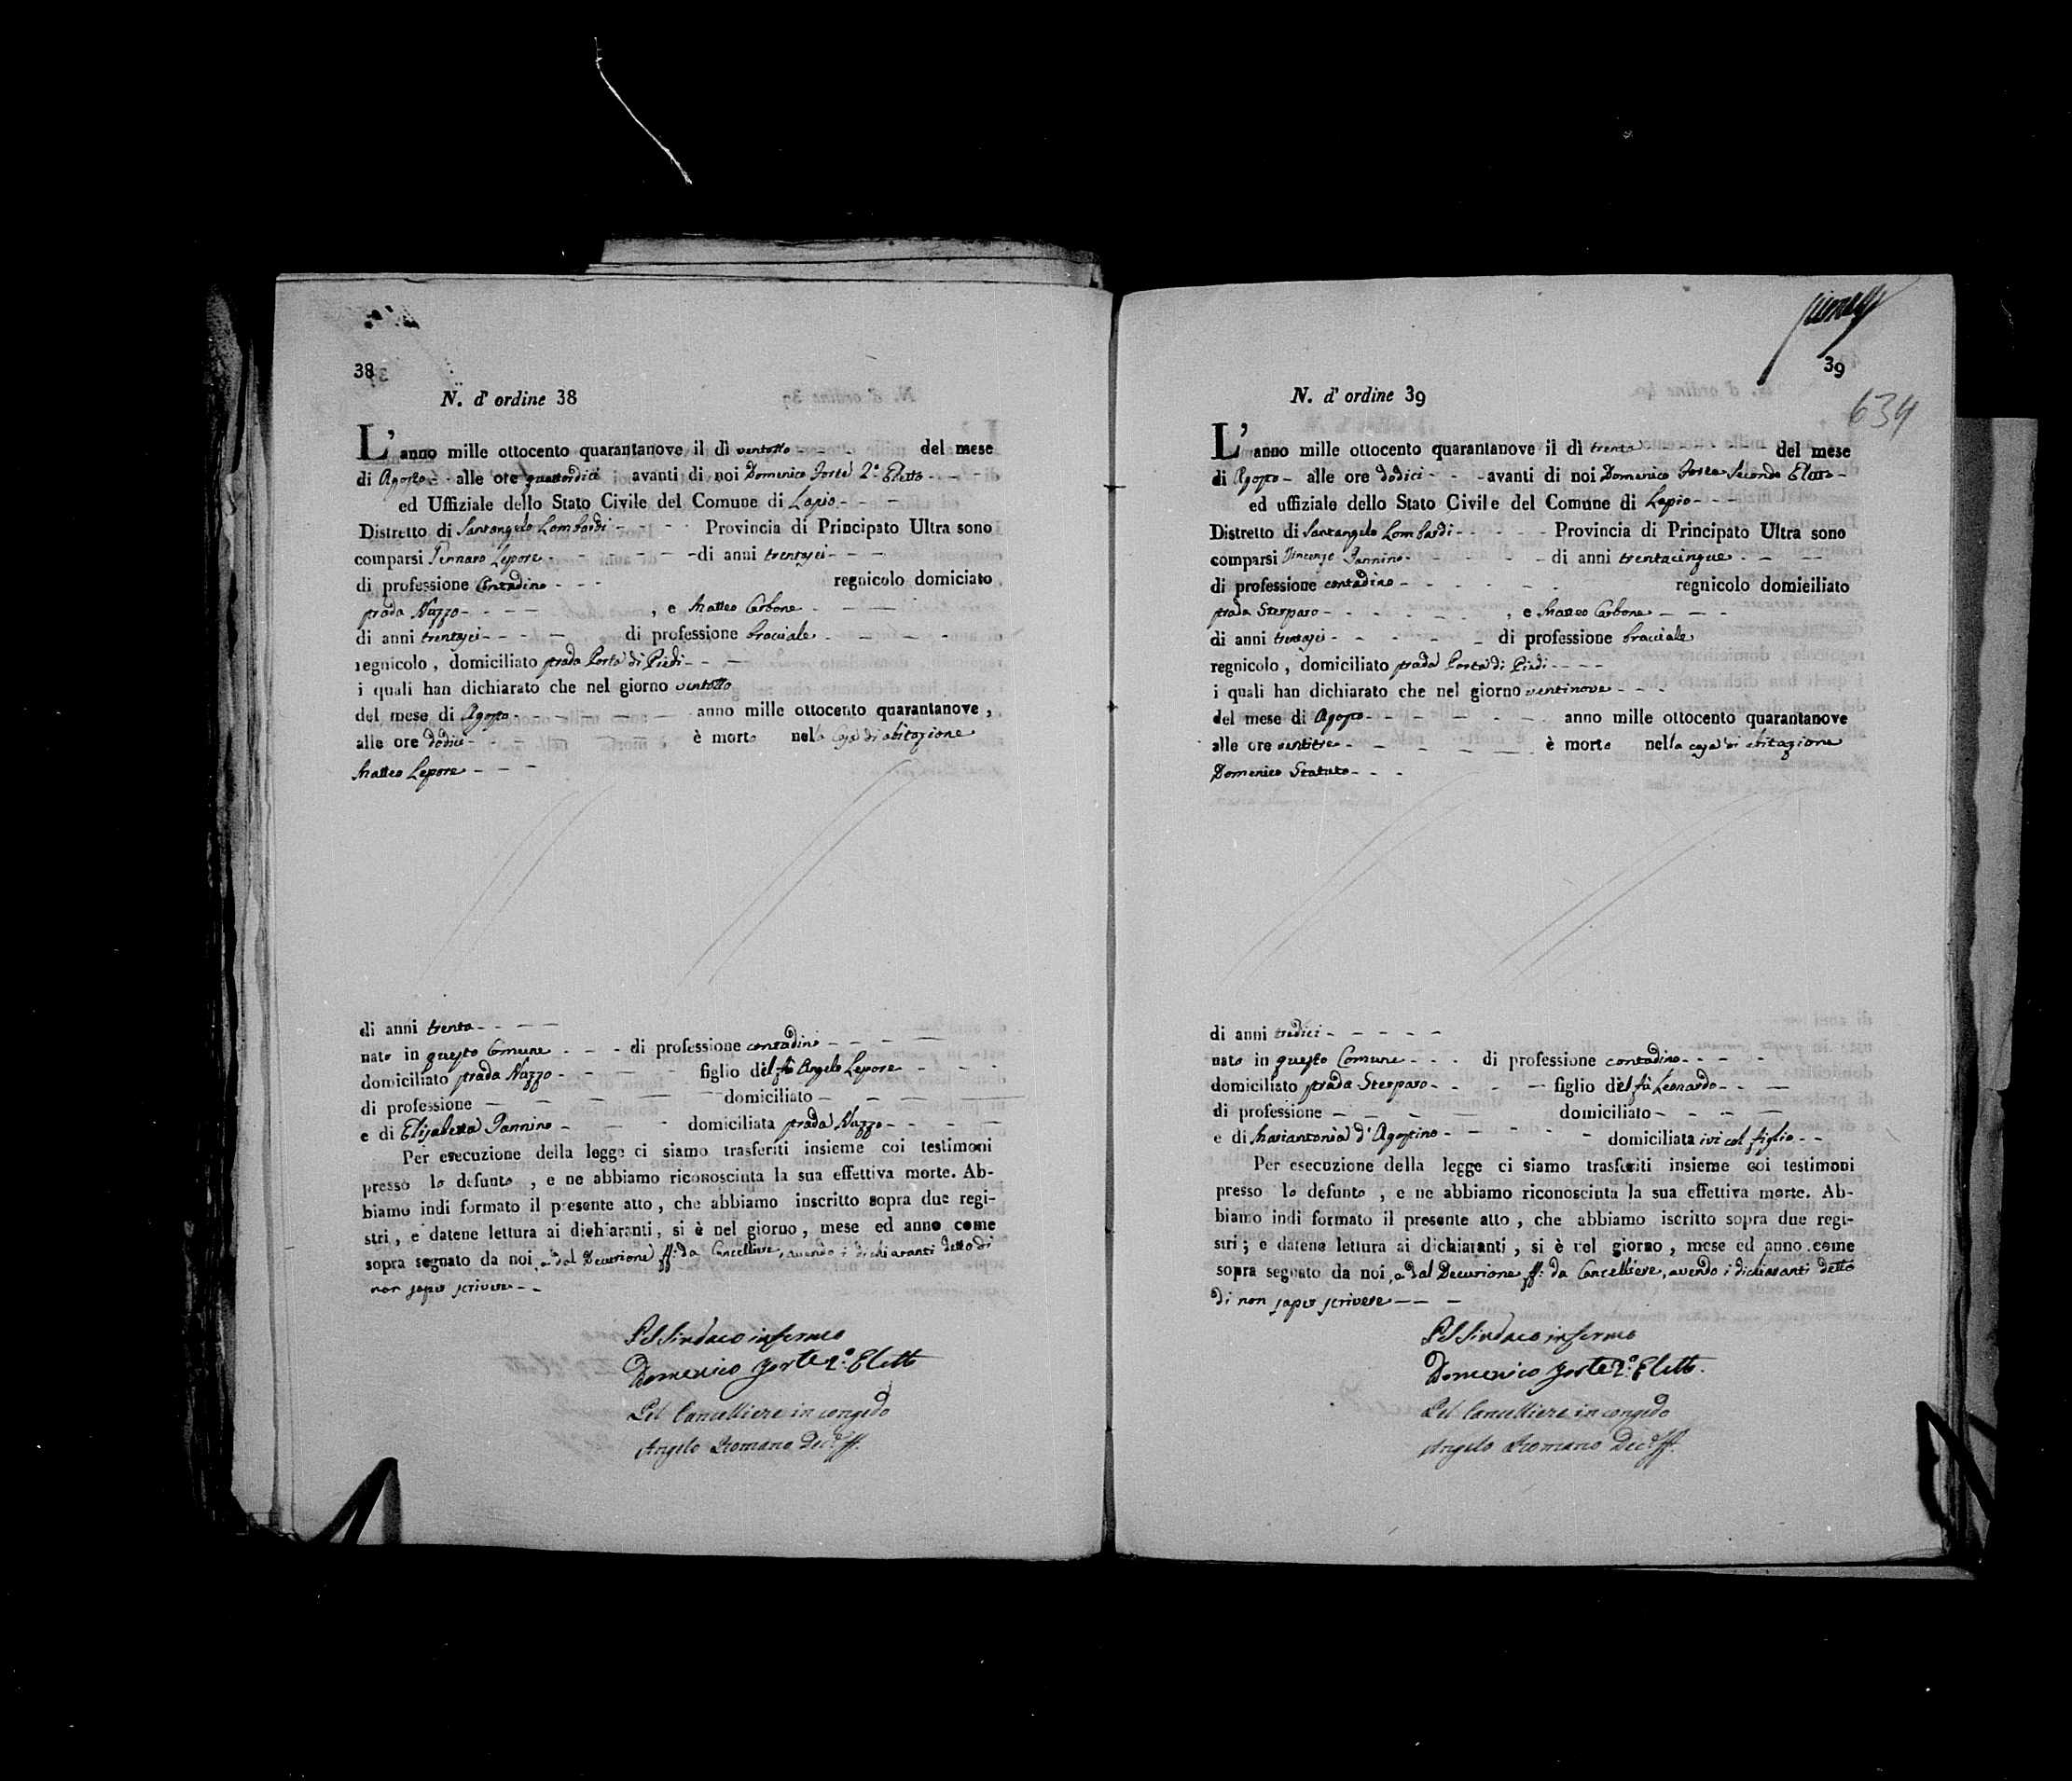 38
N. d' ordine 38
L'anno mille ottocento quarantanove il dì ventotto - - - del mese
di Agosto - alle ore quattordici avanti di noi Domenico Forte 2.° Eletto - - -
ed Uffiziale dello Stato Civile del Comune di Lapio - - -
Distretto di Santangelo Lombardi - - - - Provincia di Principato Ultra sono
comparsi Gennaro Lepore - - - - - - di anni trentasei - - -
di professione Contadino - - - regnicolo domiciato
strada Nazzo - - - - , e Matteo Carbone - - - -
di anni trentasei - - - - di professione bracciale - - - -
regnicolo , domiciliato strada Porta di Piedi - - -
i quali han dichiarato che nel giorno ventotto
del mese di Agosto - - - - - anno mille ottocento quarantanove ,
alle ore dodici - - - - - è morto nella casa di abitazione
Matteo Lepore - - -
di anni trenta - - - -
nato in questo Comune - - - di professione contadino - - - -
domiciliato strada Nazzo - - - - - figlio del fù Angelo Lepore - - - -
di professione - - - - - domiciliato - - - - -
e di Elisabetta Iannino - - - domiciliata strada Nazzo - - - -
Per esecuzione della legge ci siamo trasferiti insieme coi testimoni
presso lo defunto , e ne abbiamo riconosciuta la sua effettiva morte. Ab-
biamo indi formato il presente atto , che abbiamo inscritto sopra due regi-
stri , e datene lettura ai dichiaranti, si è nel giorno , mese ed anno come
sopra segnato da noi , e dal Decurione ff: da Cancelliere, avendo i dichiaranti detto di
non saper scrivere - -
Pel Sindaco infermo
Domenico Forte 2.° Eletto
Pel Cancelliere in congedo
Angelo Romano Dec.e ff.
39
634
N. d' ordine 39
L'anno mille ottocento quarantanove il dì trenta - - - - - - del mese
di Agosto - alle ore dodici - - - avanti di noi Domenico Forte Secondo Eletto -
ed uffiziale dello Stato Civile del Comune di Lapio - - -
Distretto di Santangelo Lombardi - - - - - Provincia di Principato Ultra sono
comparsi Vincenzo Iannino - - - - - - di anni trentacinque - - -
di professione contadino - - - - - - regnicolo domiciliato
strada Sterparo - - - - - - , e Matteo Carbone - - - -
di anni trentasei - - - - - - di professione bracciale
regnicolo , domiciliato strada Porta di Piedi - - - -
i quali han dichiarato che nel giorno ventinove - - -
del mese di Agosto - - - - - - anno mille ottocento quarantanove
alle ore ventitre - - - - - - è morto nella casa di abitazione
Domenico Statuto - - -
di anni tredici - - - - -
nato in questo Comune - - - di professione contadino - - - -
domiciliato strada Sterparo - - - - figlio del fù Leonardo - - -
di professione - - - - - domiciliato - - - -
e di Mariantonia d'Agostino - - - - - - domiciliata ivi col figlio - -
Per esecuzione della legge ci siamo trasferiti insieme coi testimoni
presso lo defunto , e ne abbiamo riconosciuta la sua effettiva morte. Ab-
biamo indi formato il presente atto , che abbiamo iscritto sopra due regi-
stri ; e datene lettura ai dichiaranti , si è nel giorno , mese ed anno come
sopra segnato da noi , e dal Decurione ff: da Cancelliere, avendo i dichiaranti detto
di non saper scrivere - - -
Pel Sindaco infermo
Domenico Forte 2.° Eletto.
Pel Cancelliere in congedo
Angelo Romano Dec.e ff.